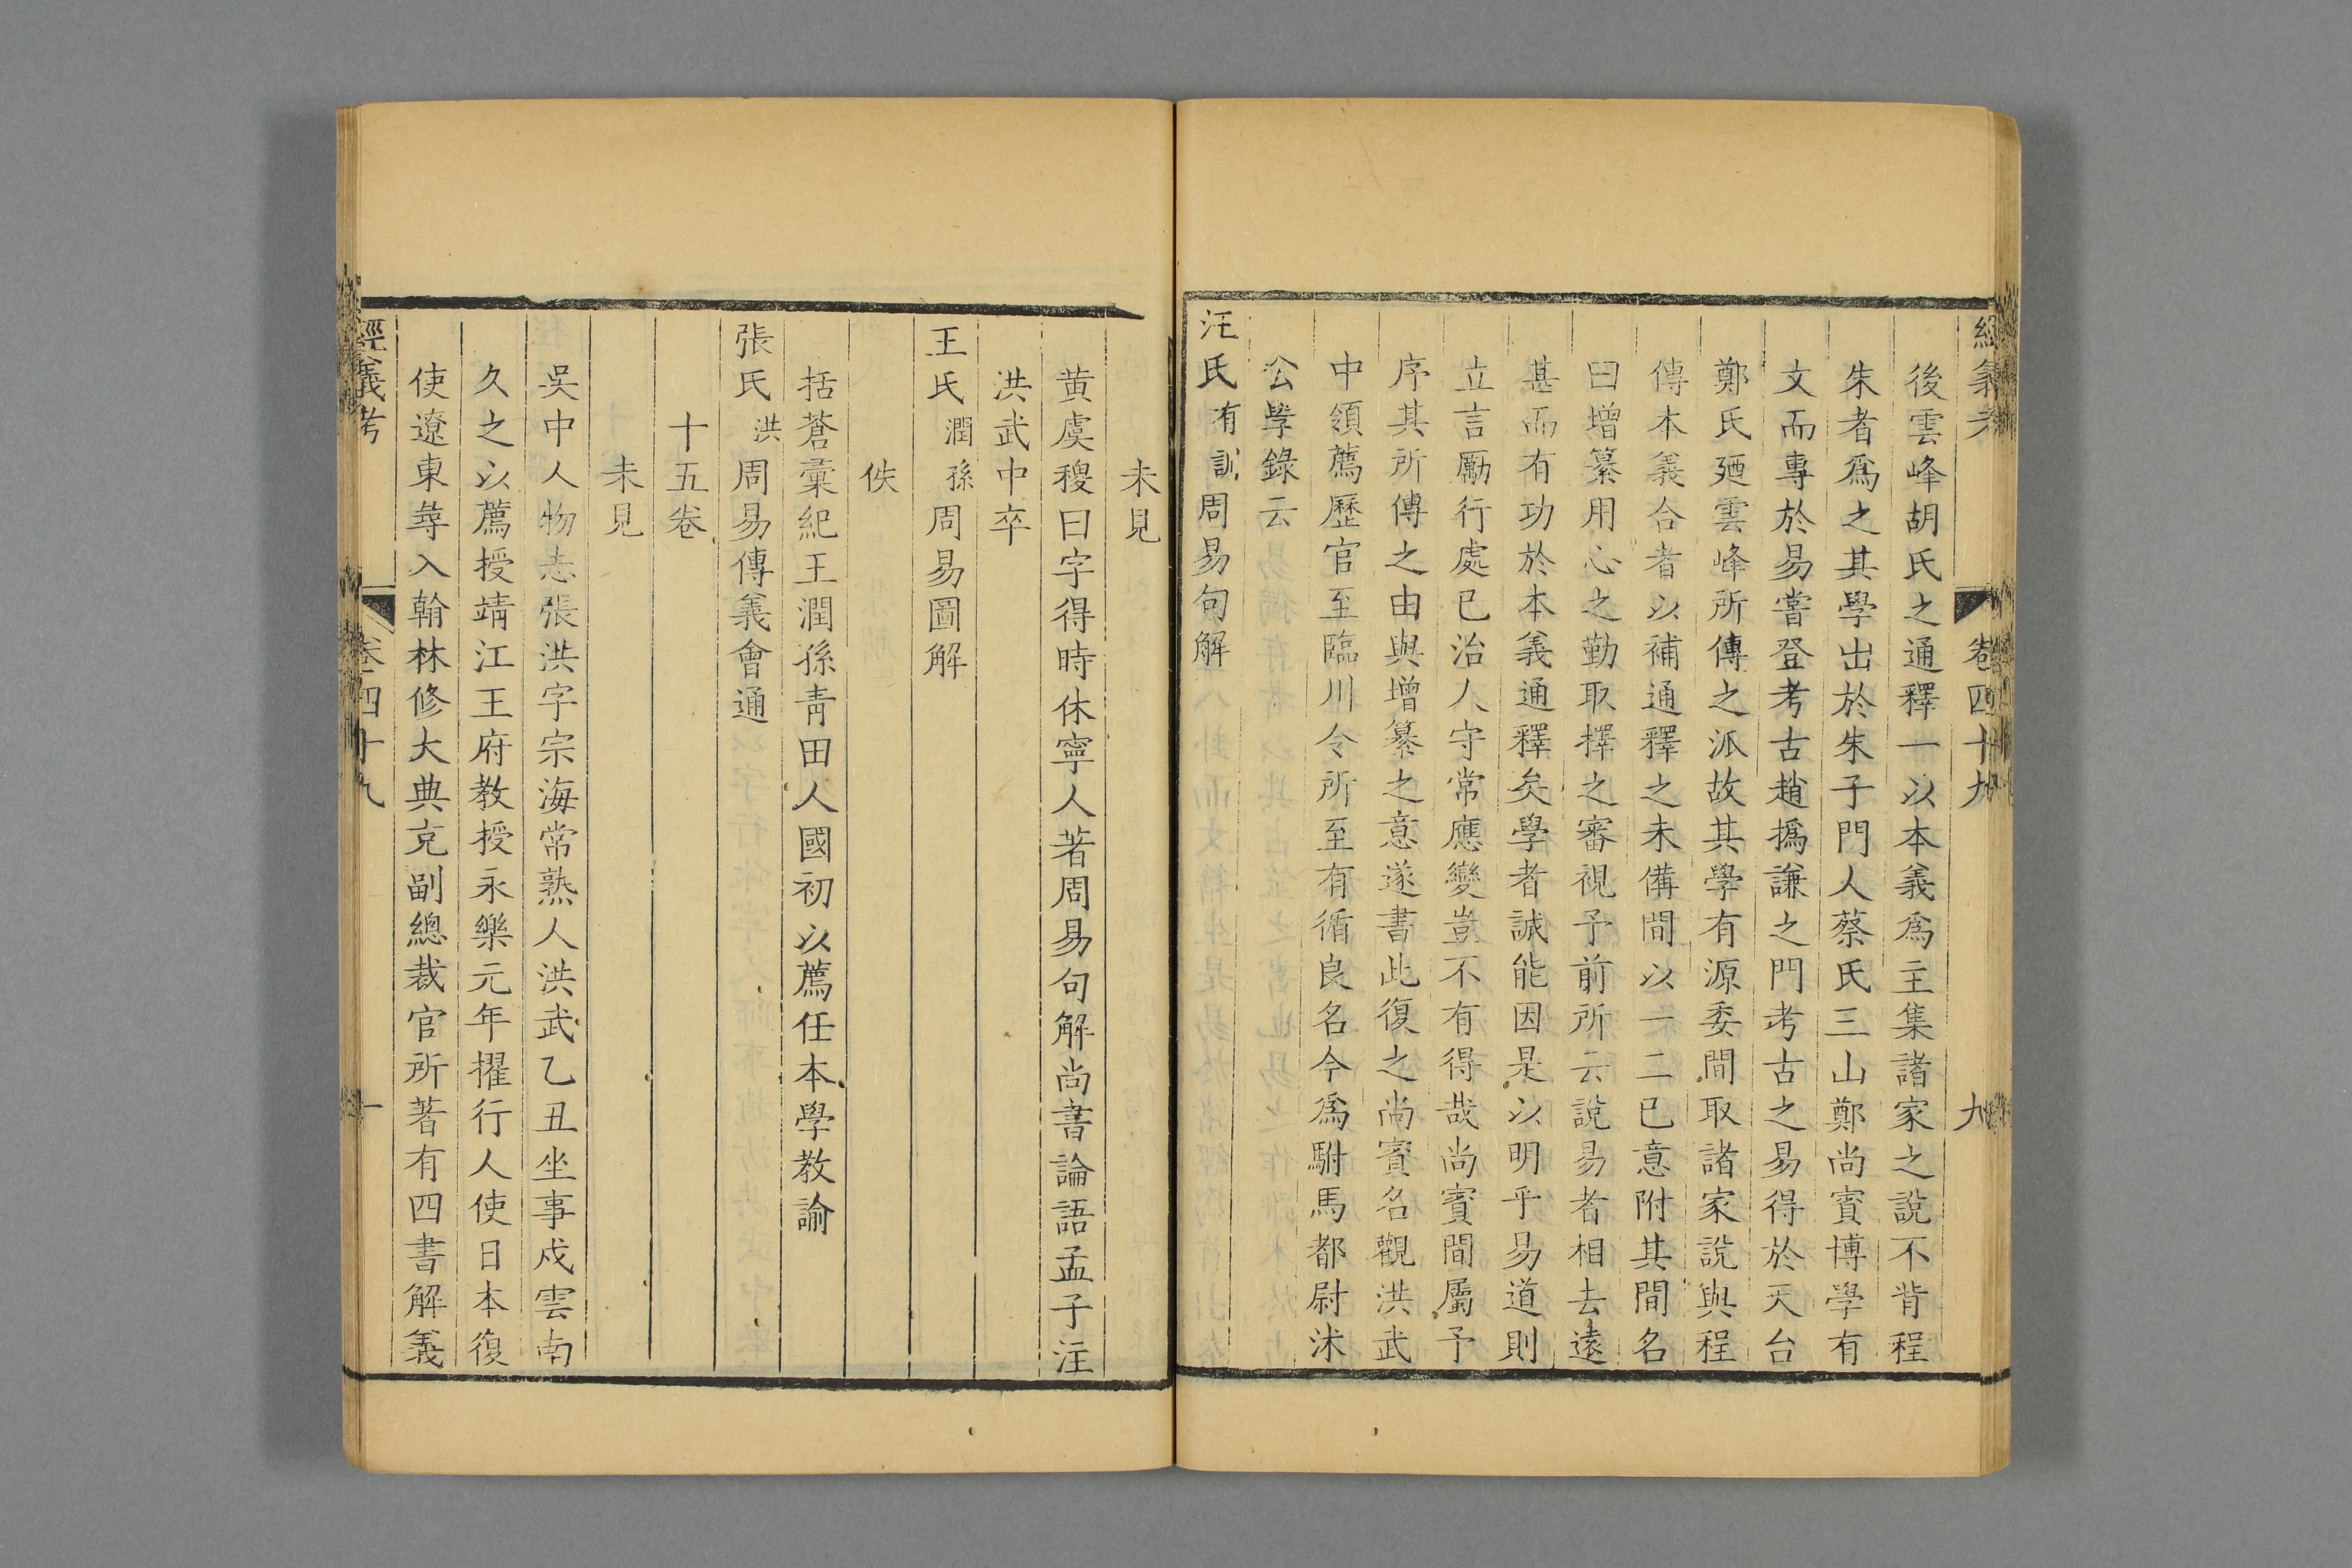 經義考 卷四十九 九
後雲峰胡氏之通釋一以本義爲主集諸家之說不背程
朱者爲之其學出於朱子門人蔡氏三山鄭尚賓博學有
文而專於易嘗登考古趙撝謙之門考古之易得於天台
鄭氏廼雲峰所傳之派故其學有源委間取諸家說與程
傳本義合者以補通釋之未備間以一二已意附其間名
曰增纂用心之勤取擇之審視予前所云說易者相去遠
甚而有功於本義通釋矣學者誠能因是以明乎易道則
立言勵行處已治人守常應變豈不有得哉尚賓間屬予
序其所傳之由與增纂之意遂書此復之尚賓名觀洪武
中領薦歷官至臨川令所至有循良名今爲駙馬都尉沐
公學錄云
汪氏有訓周易句解
未見
黃虞稷曰字得時休寧人著周易句解尚書論語孟子注
洪武中卒
王氏潤孫周易圖解
佚
括蒼彙紀王潤孫靑田人國初以薦任本學教諭
張氏洪周易傳義會通
十五卷
未見
吳中人物志張洪字宗海常熟人洪武乙丑坐事戍雲南
久之以薦授靖江王府教授永樂元年擢行人使日本復
使遼東尋入翰林修大典充副總裁官所著有四書解義
經義考 卷四十九